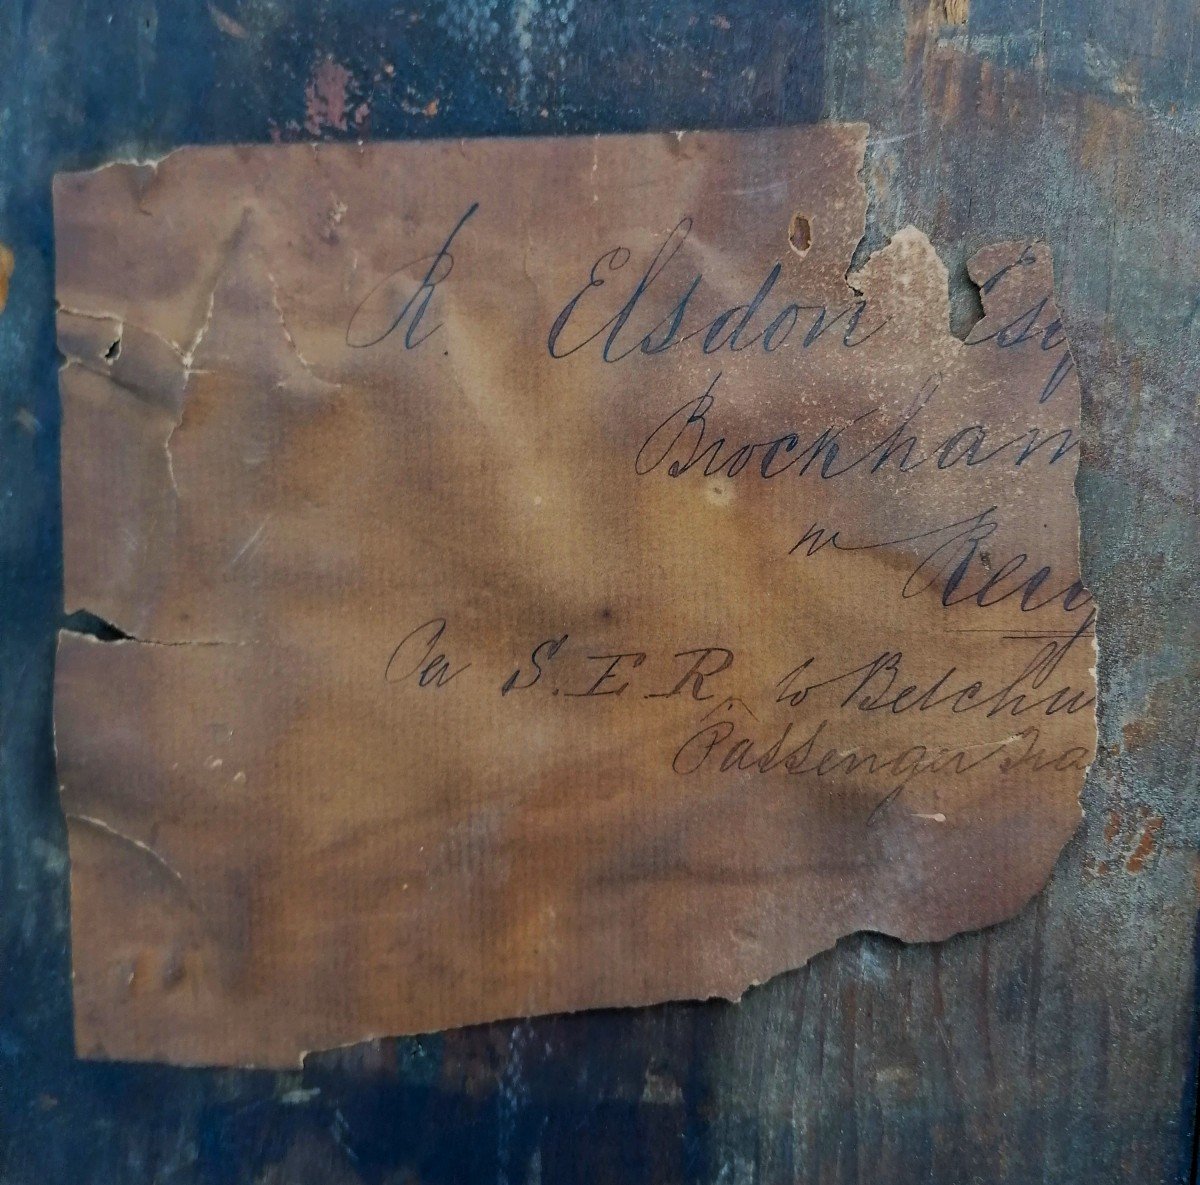 R. Elsdon Esq
Brockham
nr Reig
Per S.E.R. to Betchw
Passenger Tra